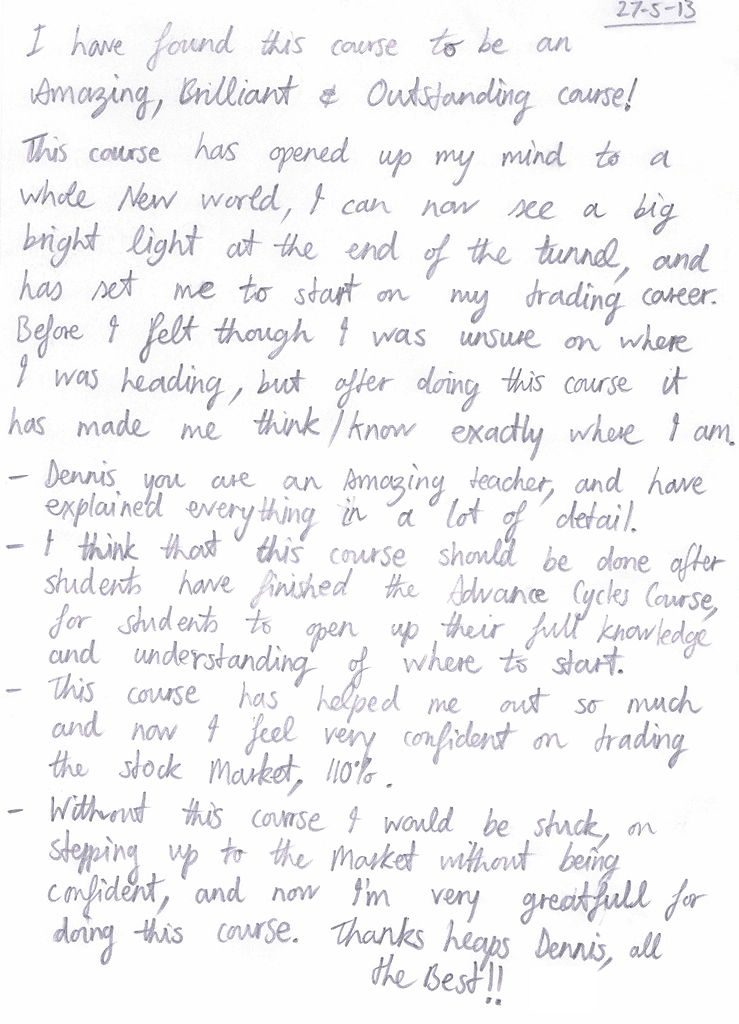 27-5-13
I have found this course to be an
Amazing, Brilliant & Outstanding course!
This course has opened up my mind to a
whole New world, I can now see a big
bright light at the end of the tunnel, and
has set me to start on my trading career.
Before I felt though I was unsure on where
I was heading, but after doing this course it
has made me think/know exactly where I am.
- Dennis you are an Amazing teacher, and have
explained everything in a lot of detail.
- I think that this course should be done after
students have finished the Advance Cycles Course,
for students to open up their full knowledge
and understanding of where to start.
- This course has helped me out so much
and now I feel very confident on trading
the stock Market, 110%.
- Without this course I would be stuck, on
stepping up to the Market without being
confident, and now I'm very greatfull for
doing this course. Thanks heaps Dennis, all
the Best!!